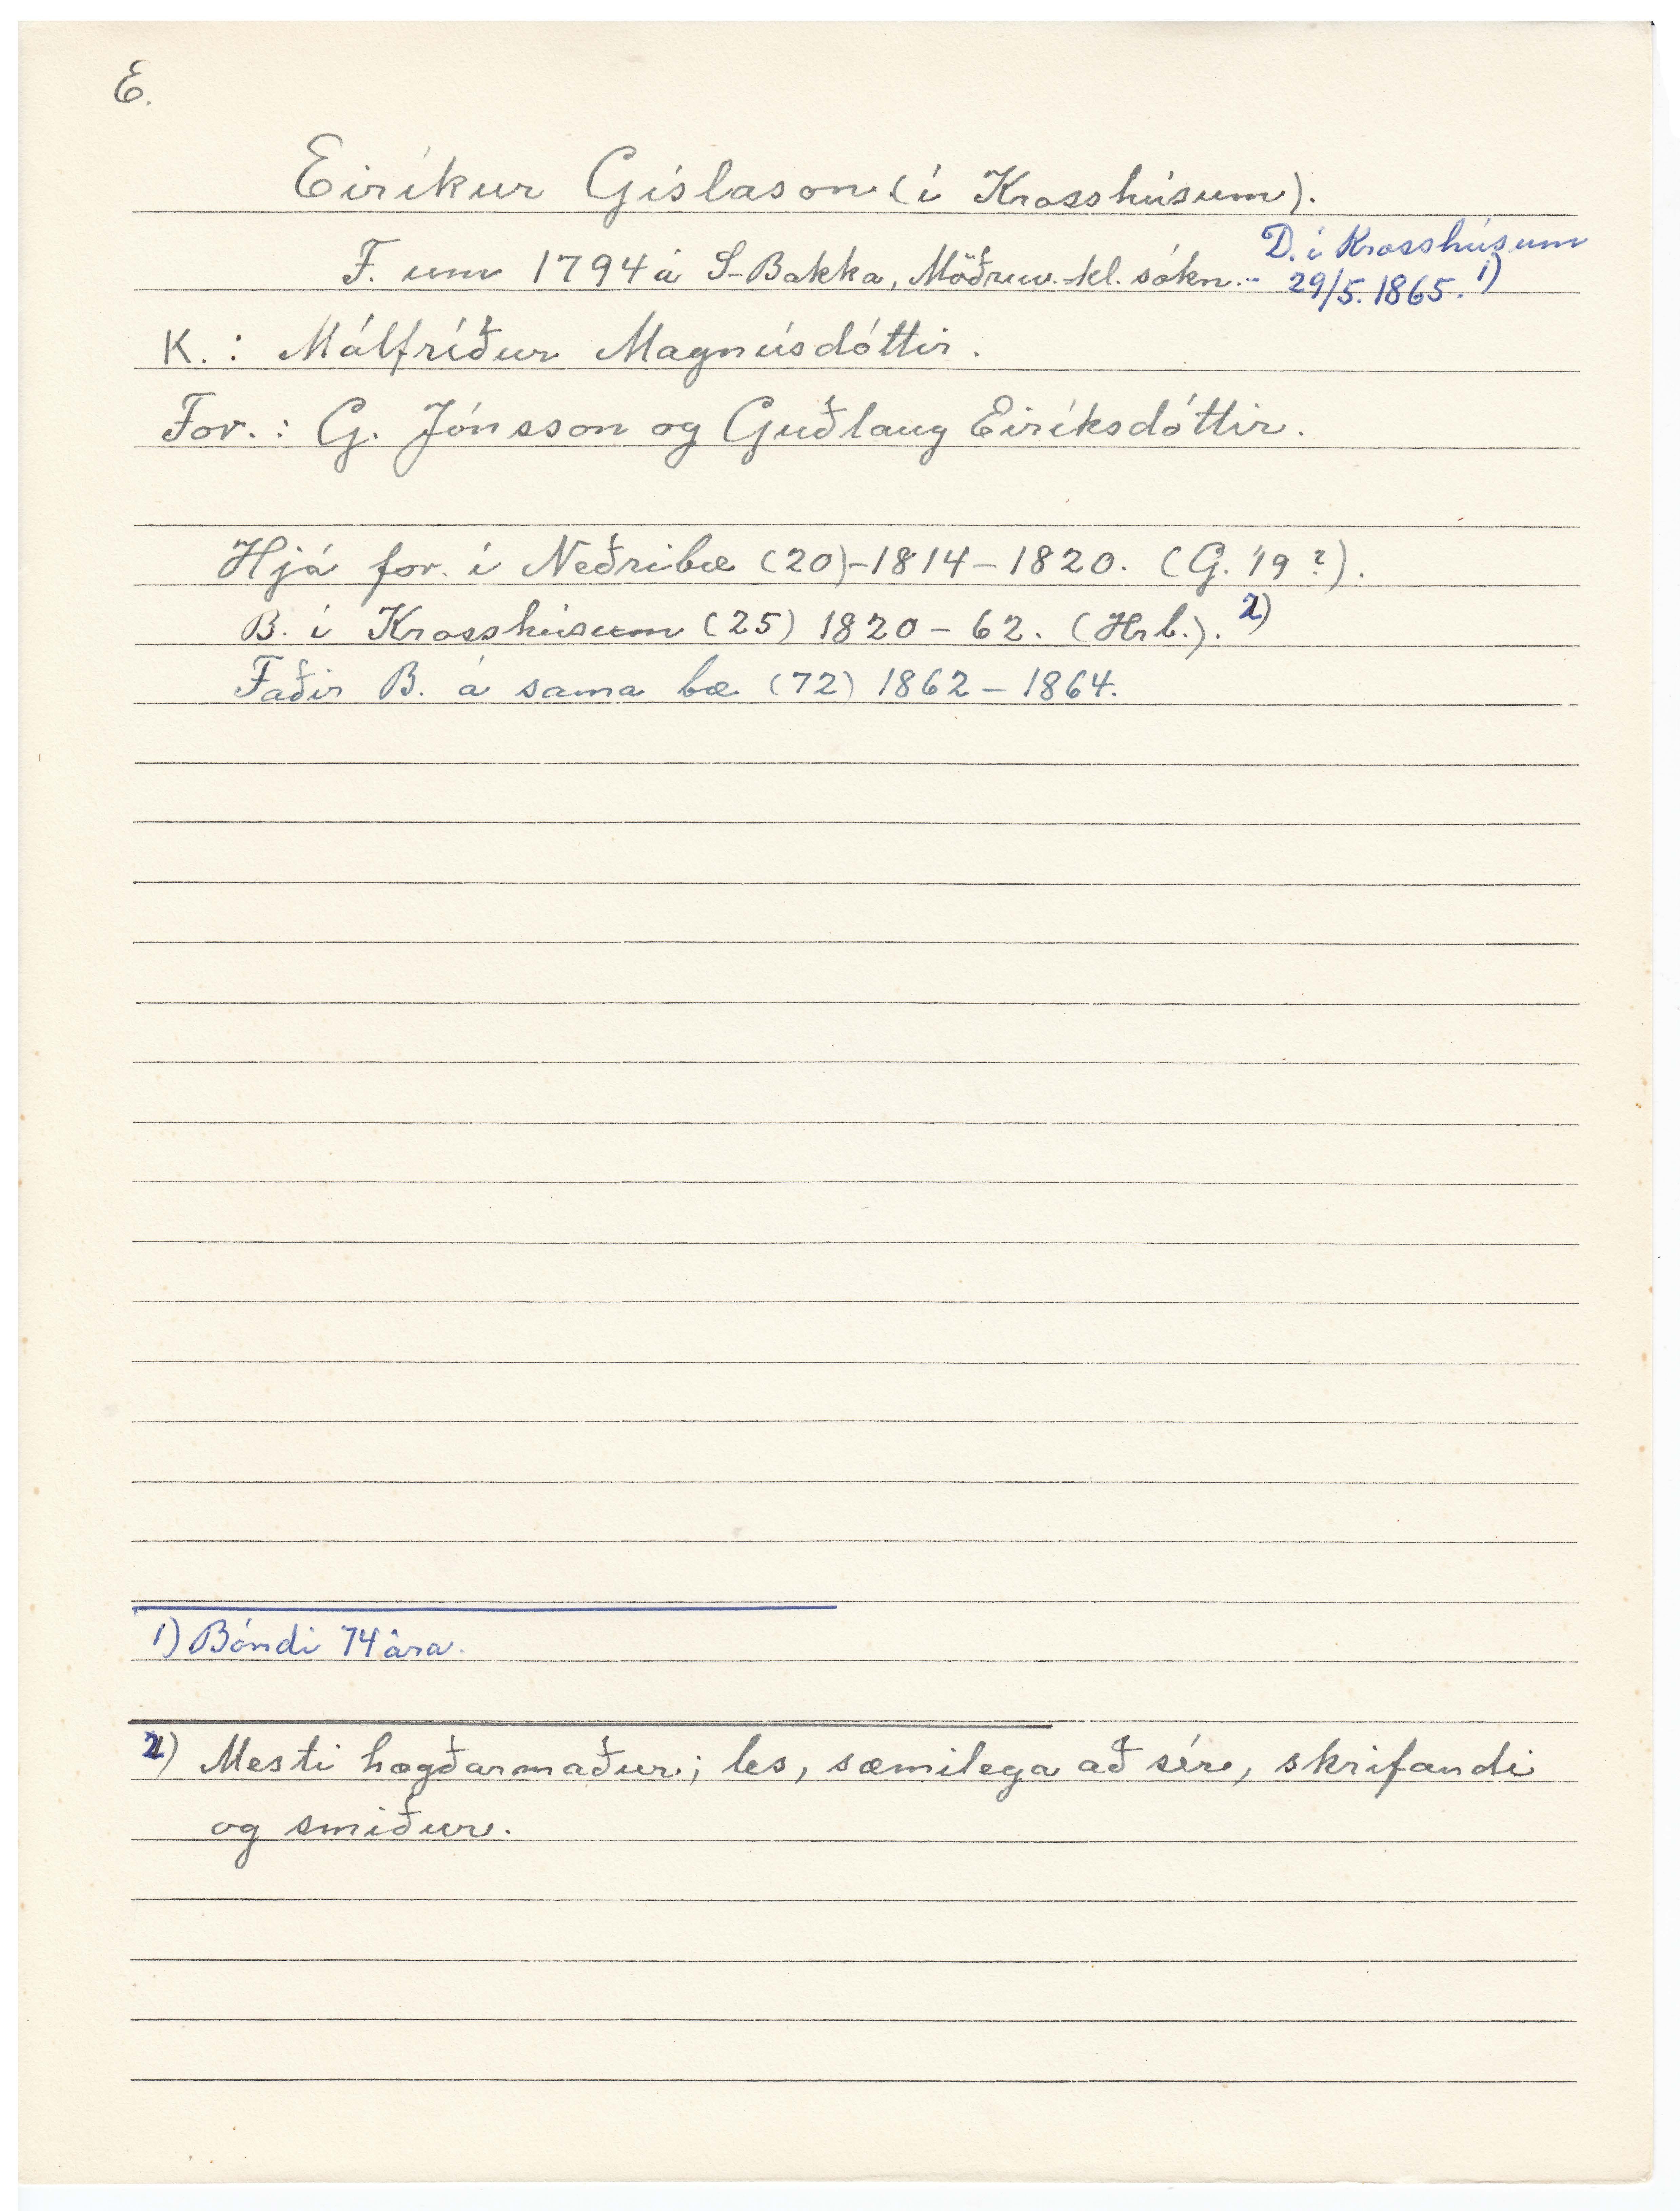 E.
Eiríkur Gíslason (í Krosshúsum).
F. um 1794 á S-Bakka, Möðruv.-kl. sókn. - D. í Krosshúsum
29/5. 1865. 1)
K. : Málfríður Magnúsdóttir.
For. : G. Jónsson og Guðlaug Eiríksdóttir.
Hjá for. í Neðribæ (20)-1814-1820. (G. 19 ?).
B. í Krosshúsum (25) 1820 - 62. (Hrb.). 2)
Faðir B. á sama bæ (72) 1862 - 1864.
1) Bóndi 74 ára.
2) Mesti hægðarmaður; les, sæmilega að sér, skrifandi
og smiður.